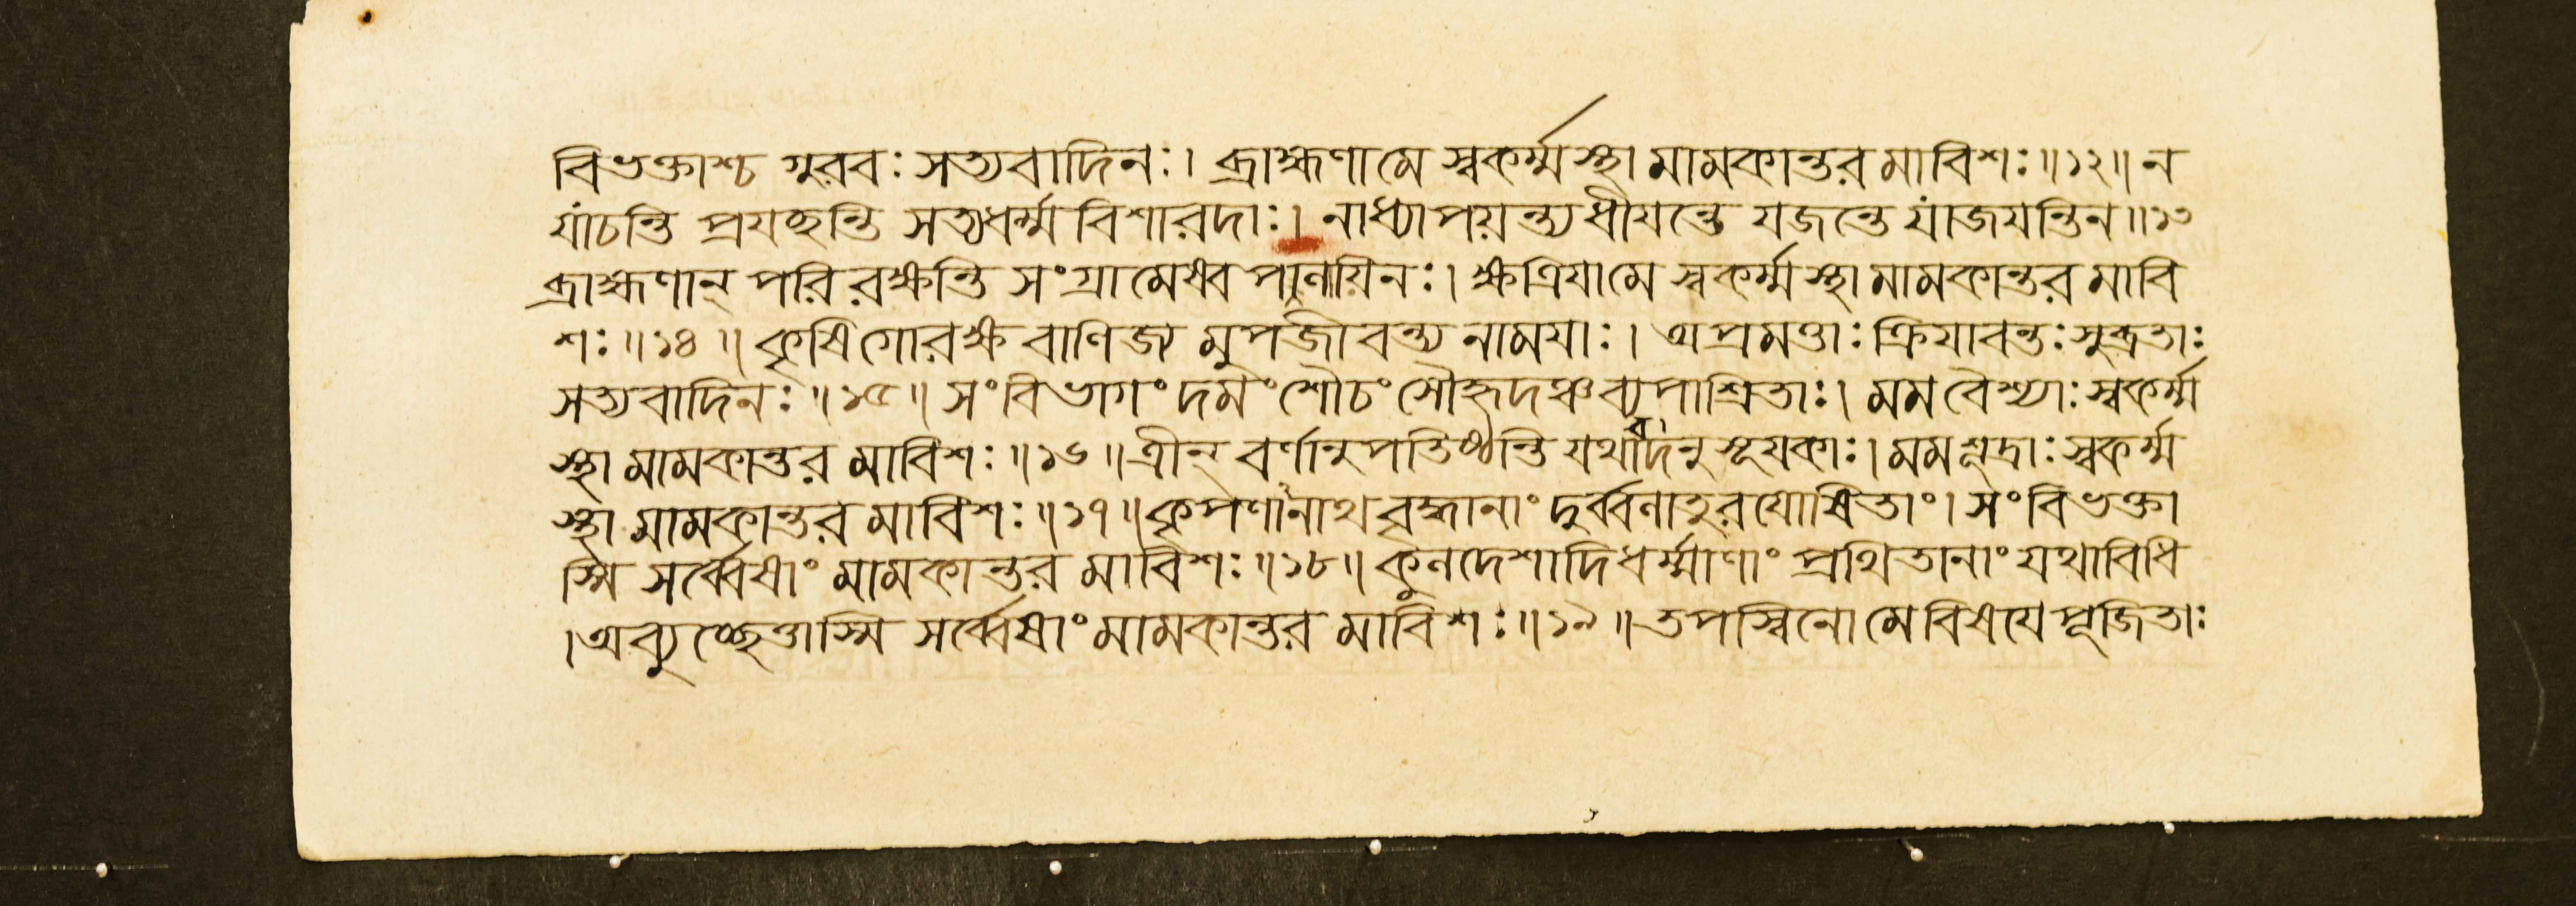 বিভক্তাশ্চ মুরব: সত্যবাদিন:। ব্রাহ্মণামে স্বকর্ম্মস্থা মামকান্তর মাবিশ:॥১২॥ ন
যাচন্তি প্রযচ্ছন্তি সত্যধর্ম্ম বিশারদা:। নাধ্যাপয়ন্ত্যধীযন্তে যজন্তে যাজযন্তিন॥১৩
ব্রাহ্মণান্ পরি রক্ষন্তি সংগ্রামেষ্বপলায়িন:। ক্ষত্রিযামে স্বকর্ম্মস্থা মামকান্তর মাবি
শ:॥১৪॥ কৃষিগোরক্ষ বাণিজ্য মুপজীবন্ত্য নাময়া:। অপ্রমত্তা: ক্রিযাবন্ত: সুব্রতা:
সত্যবাদিন:॥১৫॥ সংবিভাগং দমং শৌচং সৌহৃদঞ্চব্যপাশ্রিতা:। মমবৈশ্যা: স্বকর্ম্ম
স্থা মামকান্তর মাবিশ:॥১৬॥ ত্রীন্ বর্ণানুপতিষ্ঠন্তি যথাবদনুসূযকা:। মমশূদ্রা: স্বকর্ম্ম
স্থা মামকান্তর মাবিশ:॥১৭॥ কৃপণানাথ বৃদ্ধানাং দুর্ব্বলাতুরযোষিতাং। সংবিভক্তা
স্মি সর্ব্বেষাং মামকান্তর মাবিশ:॥১৮॥ কুলদেশাদিধর্ম্মাণাং প্রথিতানাং যথাবিধি
। অব্যুচ্ছেত্তাস্মি সর্ব্বেষাং মামকান্তর মাবিশ:॥১৯॥ তপস্বিনো মে বিষযে পূজিতা: